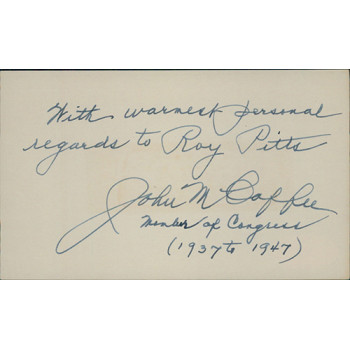 With warmest personal
regards to Roy Pitts
John M Coffee
Member of Congress
(1937 to 1947)